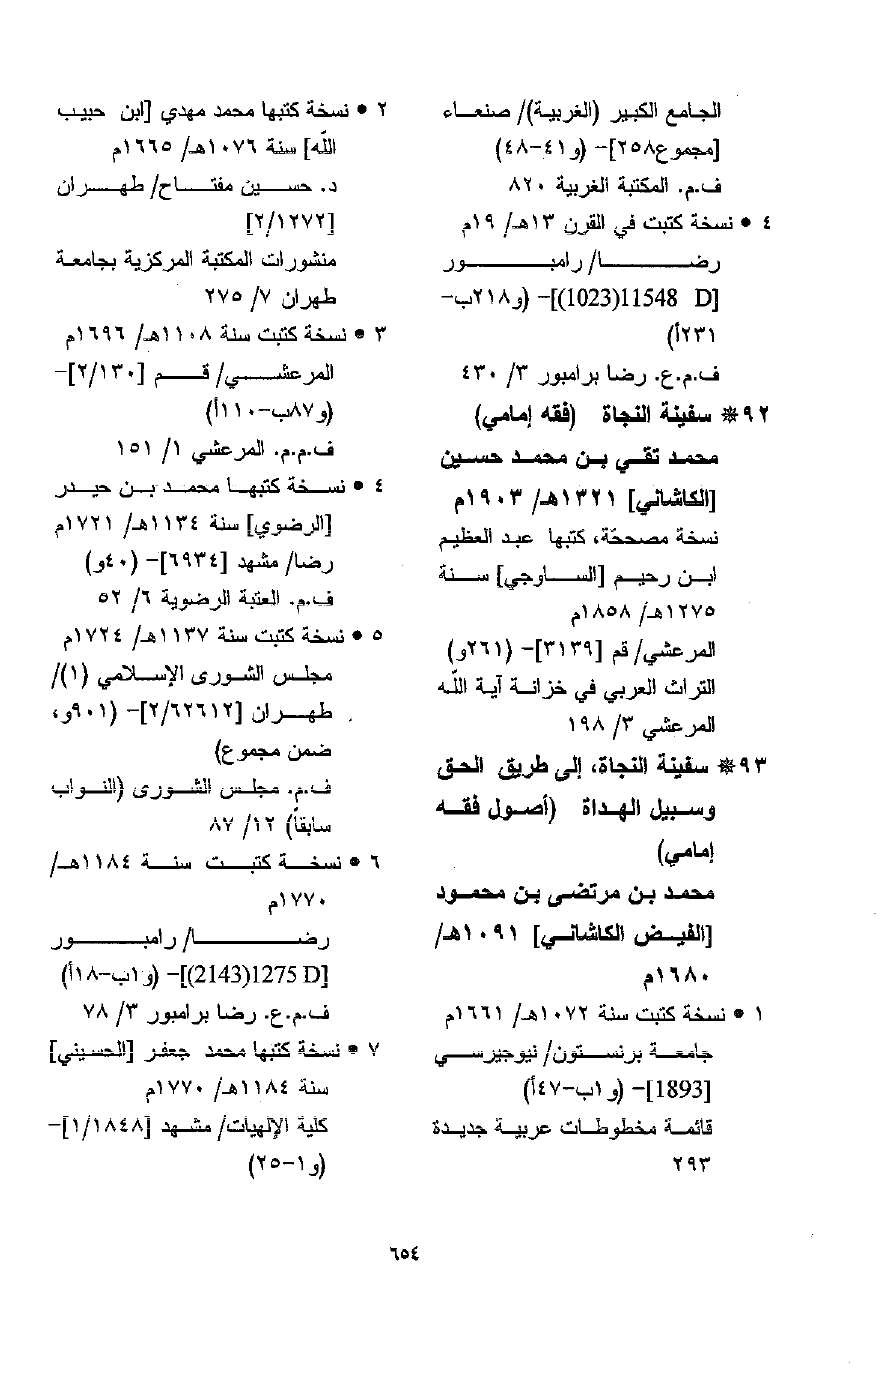 الجامع الكبير (الغربية)/ صنعاء
[مجموع٢٥٨]- (و٤١-٤٨)
ف.م. المكتبة الغربية ٨٢٠
٤ • نسخة كتبت في القرن ١٣هـ/ ١٩م
رضا/ رامبور
[11548 D(1023)]- (و٢١٨ب-
٢٣١أ)
ف.م.ع. رضا برامبور ٣/ ٤٣٠
٩٢* سفينة النجاة (فقه إمامي)
محمد تقي بن محمد حسين
[الكاشاني] ١٣٢١هـ/ ١٩٠٣م
نسخة مصححّة، كتبها عبد العظيم
ابن رحيم [الساوجي] سنة
١٢٧٥هـ/ ١٨٥٨م
المرعشي/ قم [٣١٣٩]- (٢٦١و)
التراث العربي في خزانة آية الله
المرعشي ٣/ ١٩٨
٩٣* سفينة النجاة، إلى طريق الحق
وسبيل الهداة (أصول فقه
إمامي)
محمد بن مرتضى بن محمود
[الفيض الكاشاني] ١٠٩١هـ/
١٦٨٠م
١ • نسخة كتبت سنة ١٠٧٢هـ/ ١٦٦١م
جامعة برنستون/ نيوجيرسي
[1893]- (و١ب-٤٧أ)
قائمة مخطوطات عربية جديدة
٢٩٣
٢ • نسخة كتبها محمد مهدي [ابن حبيب
الله] سنة ١٠٧٦هـ/ ١٦٦٥م
د. حسين مفتاح/ طهران
[٢/١٢٧٢]
منشورات المكتبة المركزية بجامعة
طهران ٧/ ٢٧٥
٣ • نسخة كتبت سنة ١١٠٨هـ/ ١٦٩٦م
المرعشي/ قم [٢/١٣٠]-
(و٨٧ب-١١٠أ)
ف.م.م. المرعشي ١/ ١٥١
٤ • نسخة كتبها محمد بن حيدر
[الرضوي] سنة ١١٣٤هـ/ ١٧٢١م
رضا/ مشهد [٦٩٣٤]- (٤٠و)
ف.م. العتبة الرضوية ٦/ ٥٢
٥ • نسخة كتبت سنة ١١٣٧هـ/ ١٧٢٤م
مجلس الشورى الإسلامي (١)/
طهران [٢/٦٢٦١٢]- (٩٠١و،
ضمن مجموع)
ف.م. مجلس الشورى (النواب
سابقاً) ١٢/ ٨٧
٦ • نسخة كتبت سنة ١١٨٤هـ/
١٧٧٠م
رضا/ رامبور
[1275 D(2143)]- (و١ب-١٨أ)
ف.م.ع. رضا برامبور ٣/ ٧٨
٧ • نسخة كتبها محمد جعفر [الحسيني]
سنة ١١٨٤هـ/ ١٧٧٠م
كلية الإلهيات/ مشهد [١/١٨٤٨]-
(و١-٢٥)
٦٥٤